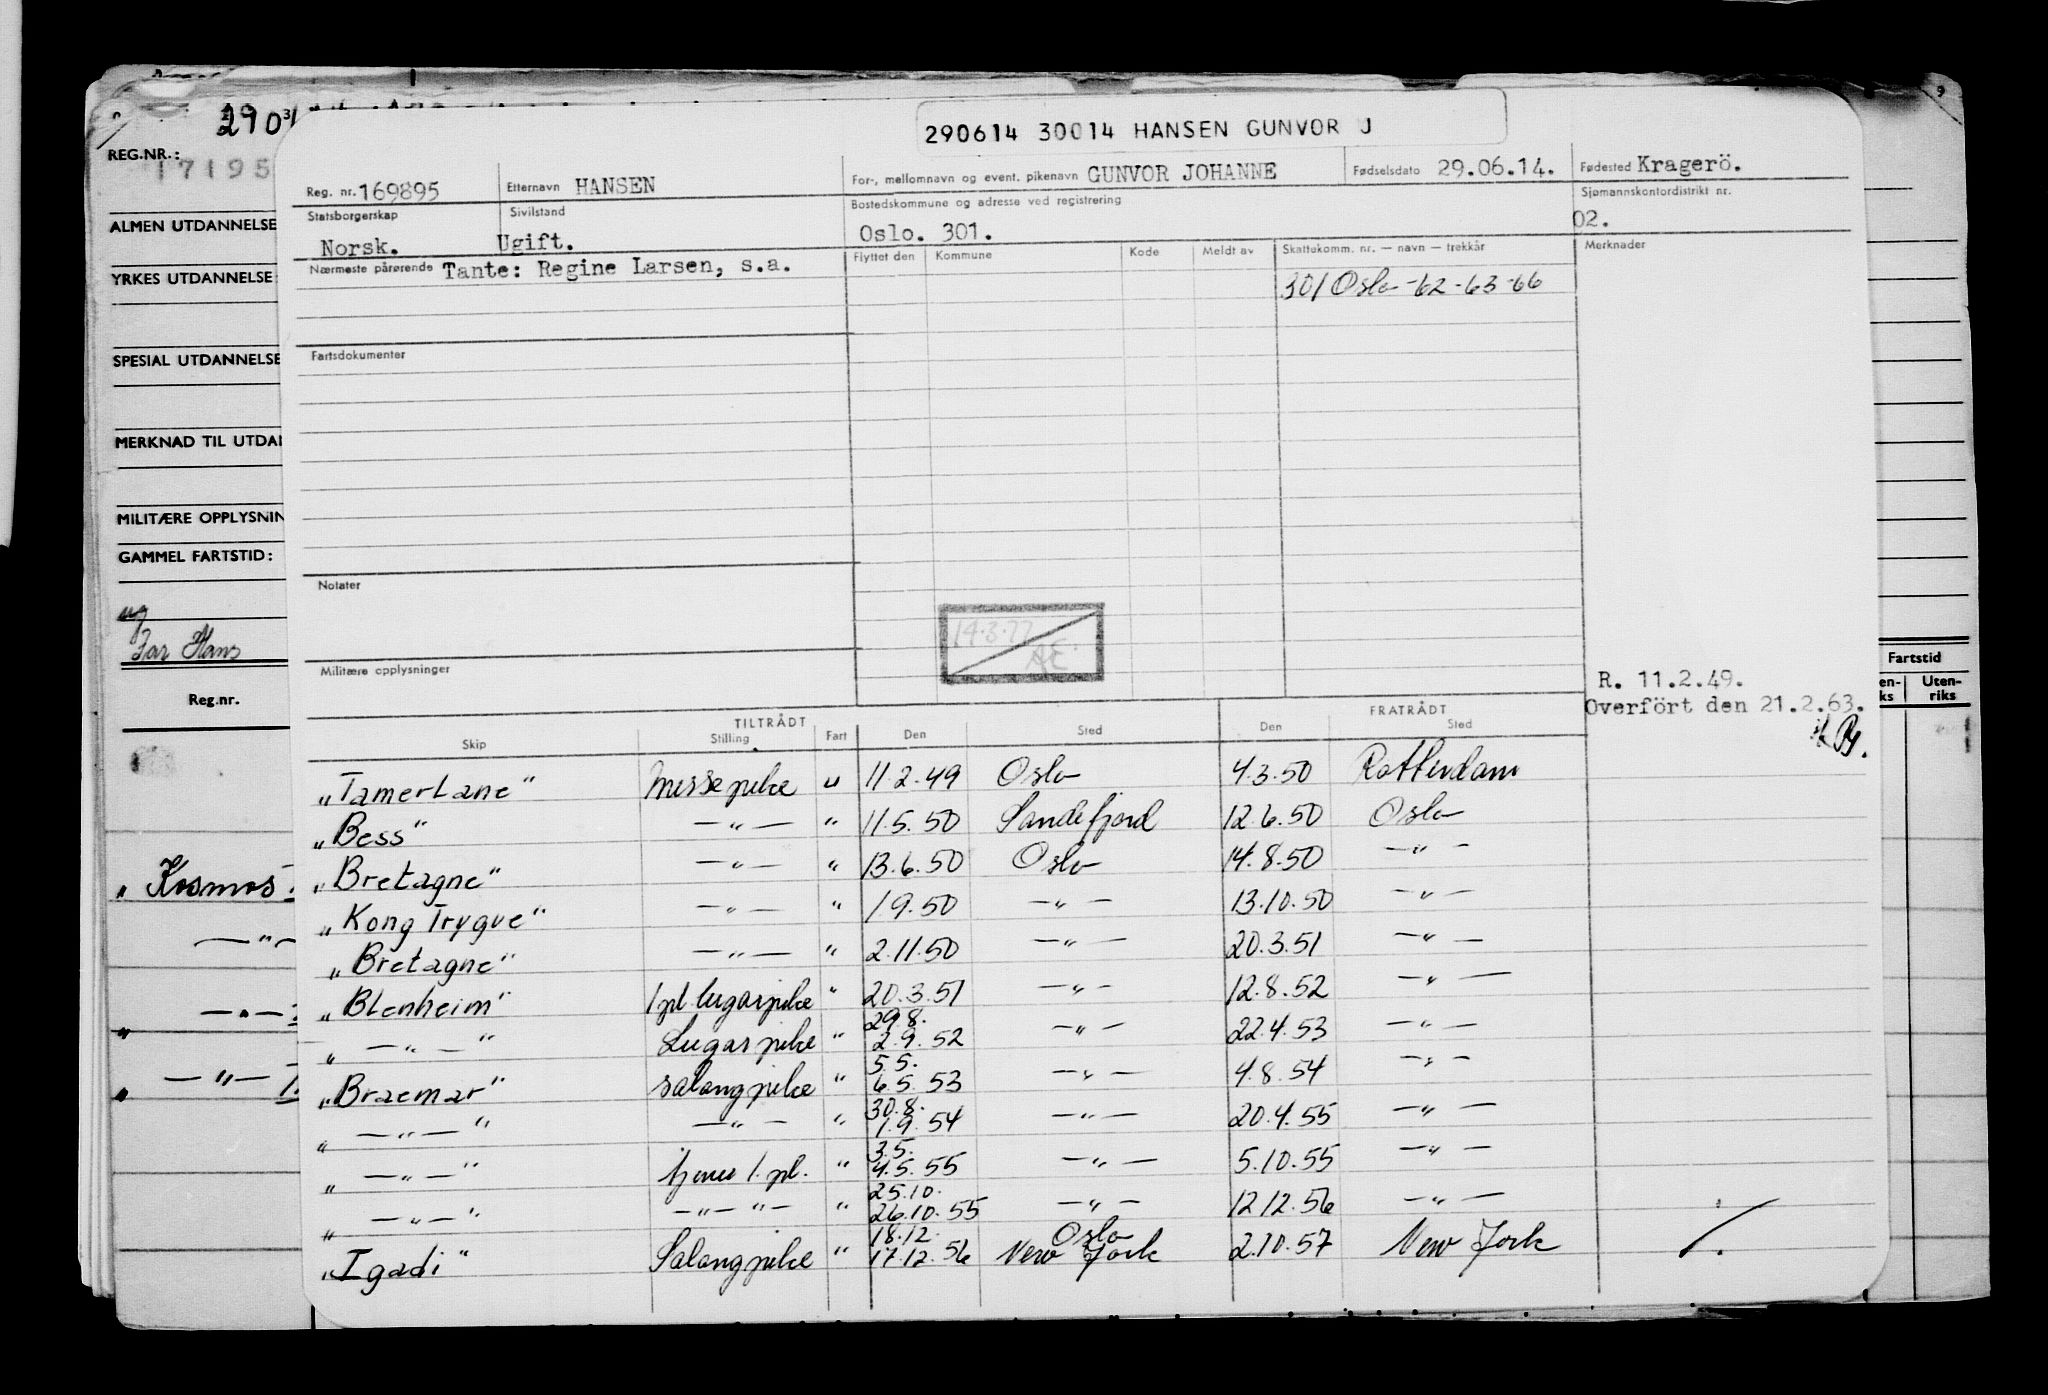 290614 30014 HANSEN GUNVOR J
Reg. nr. 169895 Etternavn HANSEN For-, mellomnavn og event. pikenavn GUNVOR JOHANNE Fødselsdato 29.06.14. Fødested Kragerö.
Statsborgerskap Norsk. Sivilstand Ugift. Bostedskommune og adresse ved registrering Oslo. 301. Sjømannskontordistrikt nr. 02.
Nærmeste pårørende Tante: Regine Larsen, s.a. Flyttet den Kommune Kode Meldt av Skattekomm. nr. — navn — trekkår Merknader
301 Oslo -62-63-66
Fartsdokumenter
Notater
14.3.77
Æ.
Militære opplysninger
R. 11.2.49.
Overfört den 21.2.63.
TILTRÅDT FRATRÅDT
Skip Stilling Fart Den Sted Den Sted
"Tamerlane" Messepike u 11.2.49 Oslo 4.3.50 Rotterdam
"Bess" —"— " 11.5.50 Sandefjord 12.6.50 Oslo
"Bretagne" —"— " 13.6.50 Oslo 14.8.50 —"—
"Kong Trygve" —"— " 1.9.50 —"— 13.10.50 —"—
"Bretagne" —"— " 2.11.50 —"— 20.3.51 —"—
"Blenheim" 1pl. lugarpike " 20.3.51 —"— 12.8.52 —"—
29.8.
"—"—" Lugarpike " 2.9.52 —"— 22.4.53 —"—
5.5.
"Braemar" salongpike " 6.5.53 —"— 4.8.54 —"—
30.8.
"—"—" —"— " 1.9.54 —"— 20.4.55 —"—
3.5.
"—"—" 1. pl. " 4.5.55 —"— 5.10.55 —"—
25.10.
"—"—" —"— "— " 26.10.55 —"— 12.12.56 —"—
18.12. Oslo
"Igadi" Salongpike " 17.12.56 New York 2.10.57 New York
REG.NR.:
17195
ALMEN UTDANNELSE
YRKES UTDANNELSE
SPESIAL UTDANNELSE
MERKNAD TIL UTDAN
MILITÆRE OPPLYSNIN
GAMMEL FARTSTID:
ug
Far Hans
Reg.nr.
"Kosmos
—"—
—"—
" —"—
Fartstid
en-
ks
Uten-
riks